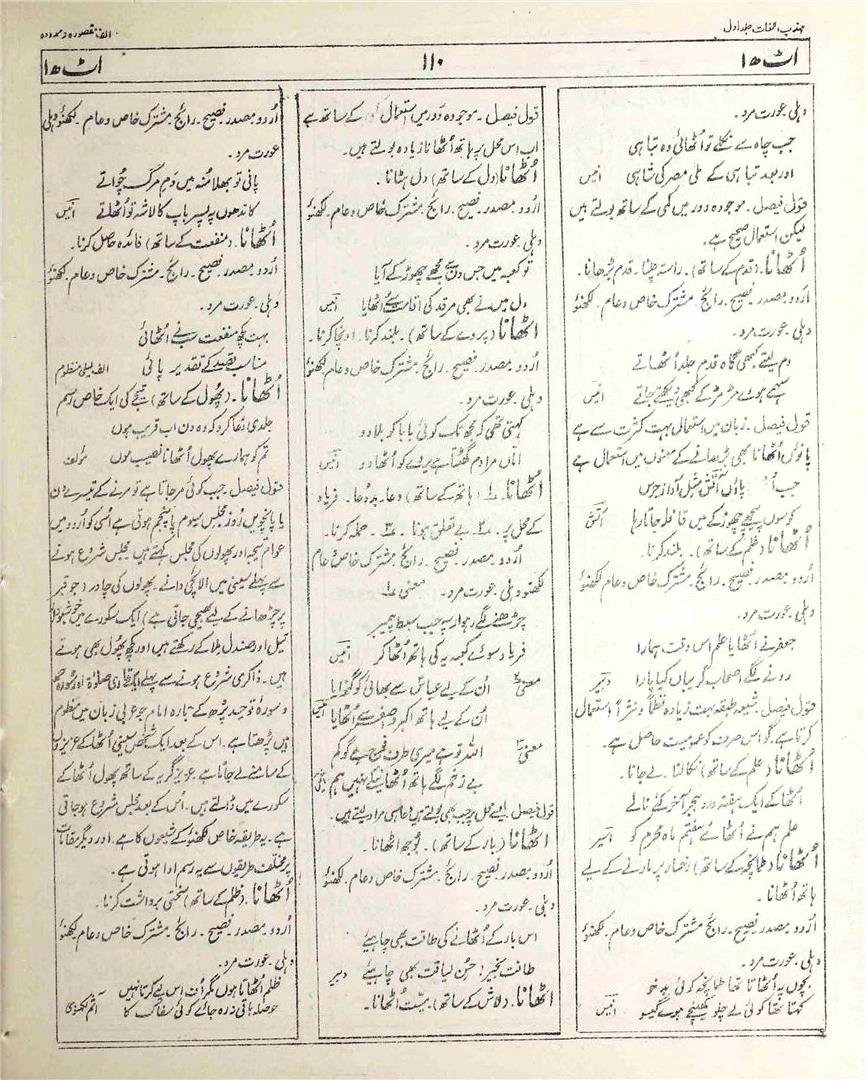 مہذب اللغات جلد اول
الف مقصورہ و ممدودہ
اٹ ھ ا
۱۱۰
اٹ ھ ا
دہلی۔ عورت مرد۔
جب چاہ سے نکلے تو اٹھائی وہ تباہی
اور بعد تباہی کے ملی مصر کی شاہی انیس
قول فیصل۔ موجودہ دور میں کمی کے ساتھ بولتے ہیں
لیکن استعمال صحیح ہے۔
اُٹھانا۔ (قدم کے ساتھ)۔ راستہ چلنا۔ قدم بڑھانا۔
اُردو مصدر۔ فصیح۔ رائج۔ مشترک خاص و عام۔ لکھنؤ
دہلی۔ عورت مرد۔
دم لیتے کبھی گاہ قدم جلد اٹھاتے
سہمے ہوے مڑ مڑ کے کبھی دیکھتے جاتے انیس
قول فیصل۔ زبان میں استعمال بہت کثرت سے ہے
پانوں اُٹھانا بھی بڑھانے کے معنوں میں استعمال ہے
جب پاؤں آتش مثل آواز جرس
کوسوں پیچھے چھوڑ کے میں قافلہ جاتا رہا آتش
اُٹھانا (علم کے ساتھ)۔ بلند کرنا۔
اُردو مصدر۔ فصیح۔ رائج۔ مشترک خاص و عام لکھنؤ
دہلی۔ عورت مرد۔
جعفر نے اٹھایا علم اس وقت ہمارا
رونے لگے اصحاب گریباں کیا پارا دبیر
قول فیصل۔ شیعہ طبقہ بہت زیادہ نظماً و نثراً استعمال
کرتا ہے گو اس صرف کو عمومیت حاصل ہے۔
اُٹھانا (علم کے ساتھ) نکالنا۔ لے جانا۔
اٹھا کے ایک ہفتہ درد ہجر آخر کئے نالے
علم ہم نے اٹھائے ہفتم ماہ محرم کو اسیر
اُٹھانا (طمانچہ کے ساتھ) رخسار پر مارنے کے لیے
ہاتھ اُٹھانا۔
اُردو مصدر۔ فصیح۔ رائج۔ مشترک خاص و عام۔ لکھنؤ
دہلی۔ عورت مرد۔
بچوں پہ اُٹھاتا تھا طمانچہ کوئی بدخو
کہتا تھا کوئی لے چلو کھینچے ہوے گیسو انیس
قول فیصل۔ موجودہ دور میں استعمال کے ساتھ ہے
اب اس محل پر ہاتھ اُٹھانا زیادہ بولتے ہیں۔
اُٹھانا (دل کے ساتھ) دل ہٹانا۔
اُردو مصدر۔ فصیح۔ رائج۔ مشترک خاص و عام۔ لکھنؤ
دہلی۔ عورت مرد۔
تو کعبہ میں جس دن سے مجھے چھوڑ کے آیا
دل میں نے بھی مرقد کی اقامت سے اٹھایا انیس
اُٹھانا (پردے کے ساتھ)۔ بلند کرنا۔ اونچا کرنا۔
اُردو مصدر۔ فصیح۔ رائج۔ مشترک خاص و عام۔ لکھنؤ
دہلی۔ عورت مرد۔
کہتی تھی کہ مجھ تک کوئی بابا کو بلا دو
اماں مرا دم گھٹتا ہے پردے کو اٹھا دو انیس
اُٹھانا۔ ۱ (ہاتھ کے ساتھ) دعا۔ بددعا۔ فریاد
کے محل پر۔ ۲ بے تعلق ہونا۔ ۳۔ حملہ کرنا۔
اُردو مصدر۔ فصیح۔ رائج۔ مشترک خاص و عام
لکھنؤ دہلی۔ عورت مرد۔ معنی ۱
چڑھنے لگے رہوار پہ جب سبط پیمبر
فریاد سوے کعبہ یہ کی ہاتھ اٹھا کر انیس
معنی ۲ اُن کے لیے عباس سے بھائی کو گنوایا
اُن کے لیے ہاتھ اکبر و اصغر سے اٹھایا انیس
معنی ۳ اللہ تو ہے میری طرف فوج ہے گو کم
بے زخم لگے ہاتھ اُٹھانے کے نہیں ہم
قول فیصل۔ ایسے محل پر جب بھی بولتے ہیں عاسی مراد لیتے ہیں۔
اُٹھانا (بار کے ساتھ)۔ بوجھ اٹھانا۔
اُردو مصدر۔ فصیح۔ رائج۔ مشترک خاص و عام۔ لکھنؤ
دہلی۔ عورت مرد۔
اس بار کے اُٹھانے کی طاقت بھی چاہیے
طاقت بخیر! حسن لیاقت بھی چاہیے دبیر
اُٹھانا۔ (لاش کے ساتھ)۔ میت اُٹھانا۔
اُردو مصدر۔ فصیح۔ رائج۔ مشترک خاص و عام۔ لکھنؤ دہلی
عورت مرد۔
پانی تو بھلا منہ میں دم مرگ چواتے
کاندھوں پہ پسر باپ کا لاشہ تو اٹھاتے انیس
اُٹھانا۔ (منفعت کے ساتھ) فائدہ حاصل کرنا۔
اُردو مصدر۔ فصیح۔ رائج۔ مشترک خاص و عام۔ لکھنؤ
دہلی۔ عورت مرد۔
بہت کچھ منفعت سب نے اُٹھائی
مناسب بقصد کے تقدیر پائی الف لیلیٰ منظوم
اُٹھانا۔ (پھول کے ساتھ) تیجے کی ایک خاص رسم
جلدی دعا کرو کہ وہ دن اب قریب ہوں
تم کو ہمارے پھول اُٹھانا نصیب ہوں مؤلف
قول فیصل۔ جب کوئی مرجاتا ہے تو مرنے کے تیسرے دن
یا پانچویں روز مجلس سیوم یا پنجم ہوتی ہے اُسی کو اُردو میں
عوام تیجہ اور پھولوں کی مجلس کہتے ہیں۔ مجلس شروع ہونے
سے پہلے سینی میں الائچی دانے۔ پھولوں کی چادر (جو قبر
پر چڑھانے کے لیے بھیجی جاتی ہے) ایک سکورے میں خوشبودار
تیل اور صندل ملا کے رکھتے ہیں اور کچھ پھول بھی ہوتے
ہیں۔ ذاکری شروع ہونے سے پہلے ایک قاری صلوٰۃ اور سورہ حمد
و سورۂ توحید پڑھ کے بتارہ امام جو عربی زبان میں منظوم
ہیں پڑھتا ہے۔ اس کے بعد ایک شخص سینی اُٹھا کے عزیزوں
کے سامنے لے جاتا ہے۔ عزیز گریہ کے ساتھ پھول اُٹھا کے
سکورے میں ڈالتے ہیں۔ اُس کے بعد مجلس شروع ہو جاتی
ہے۔ یہ طریقہ خاص لکھنؤ کے شیعوں کا ہے۔ اور دیگر مقامات
پر مختلف طریقوں سے یہ رسم ادا ہوتی ہے۔
اُٹھانا۔ (ظلم کے ساتھ) سختی برداشت کرنا۔
اُردو مصدر۔ فصیح۔ رائج۔ مشترک خاص و عام۔ لکھنؤ
دہلی۔ عورت مرد۔
ظلم اُٹھاتا ہوں مگر اُف اس لیے کرتا نہیں
حوصلہ باقی نہ رہ جائے کوئی سفاک کا